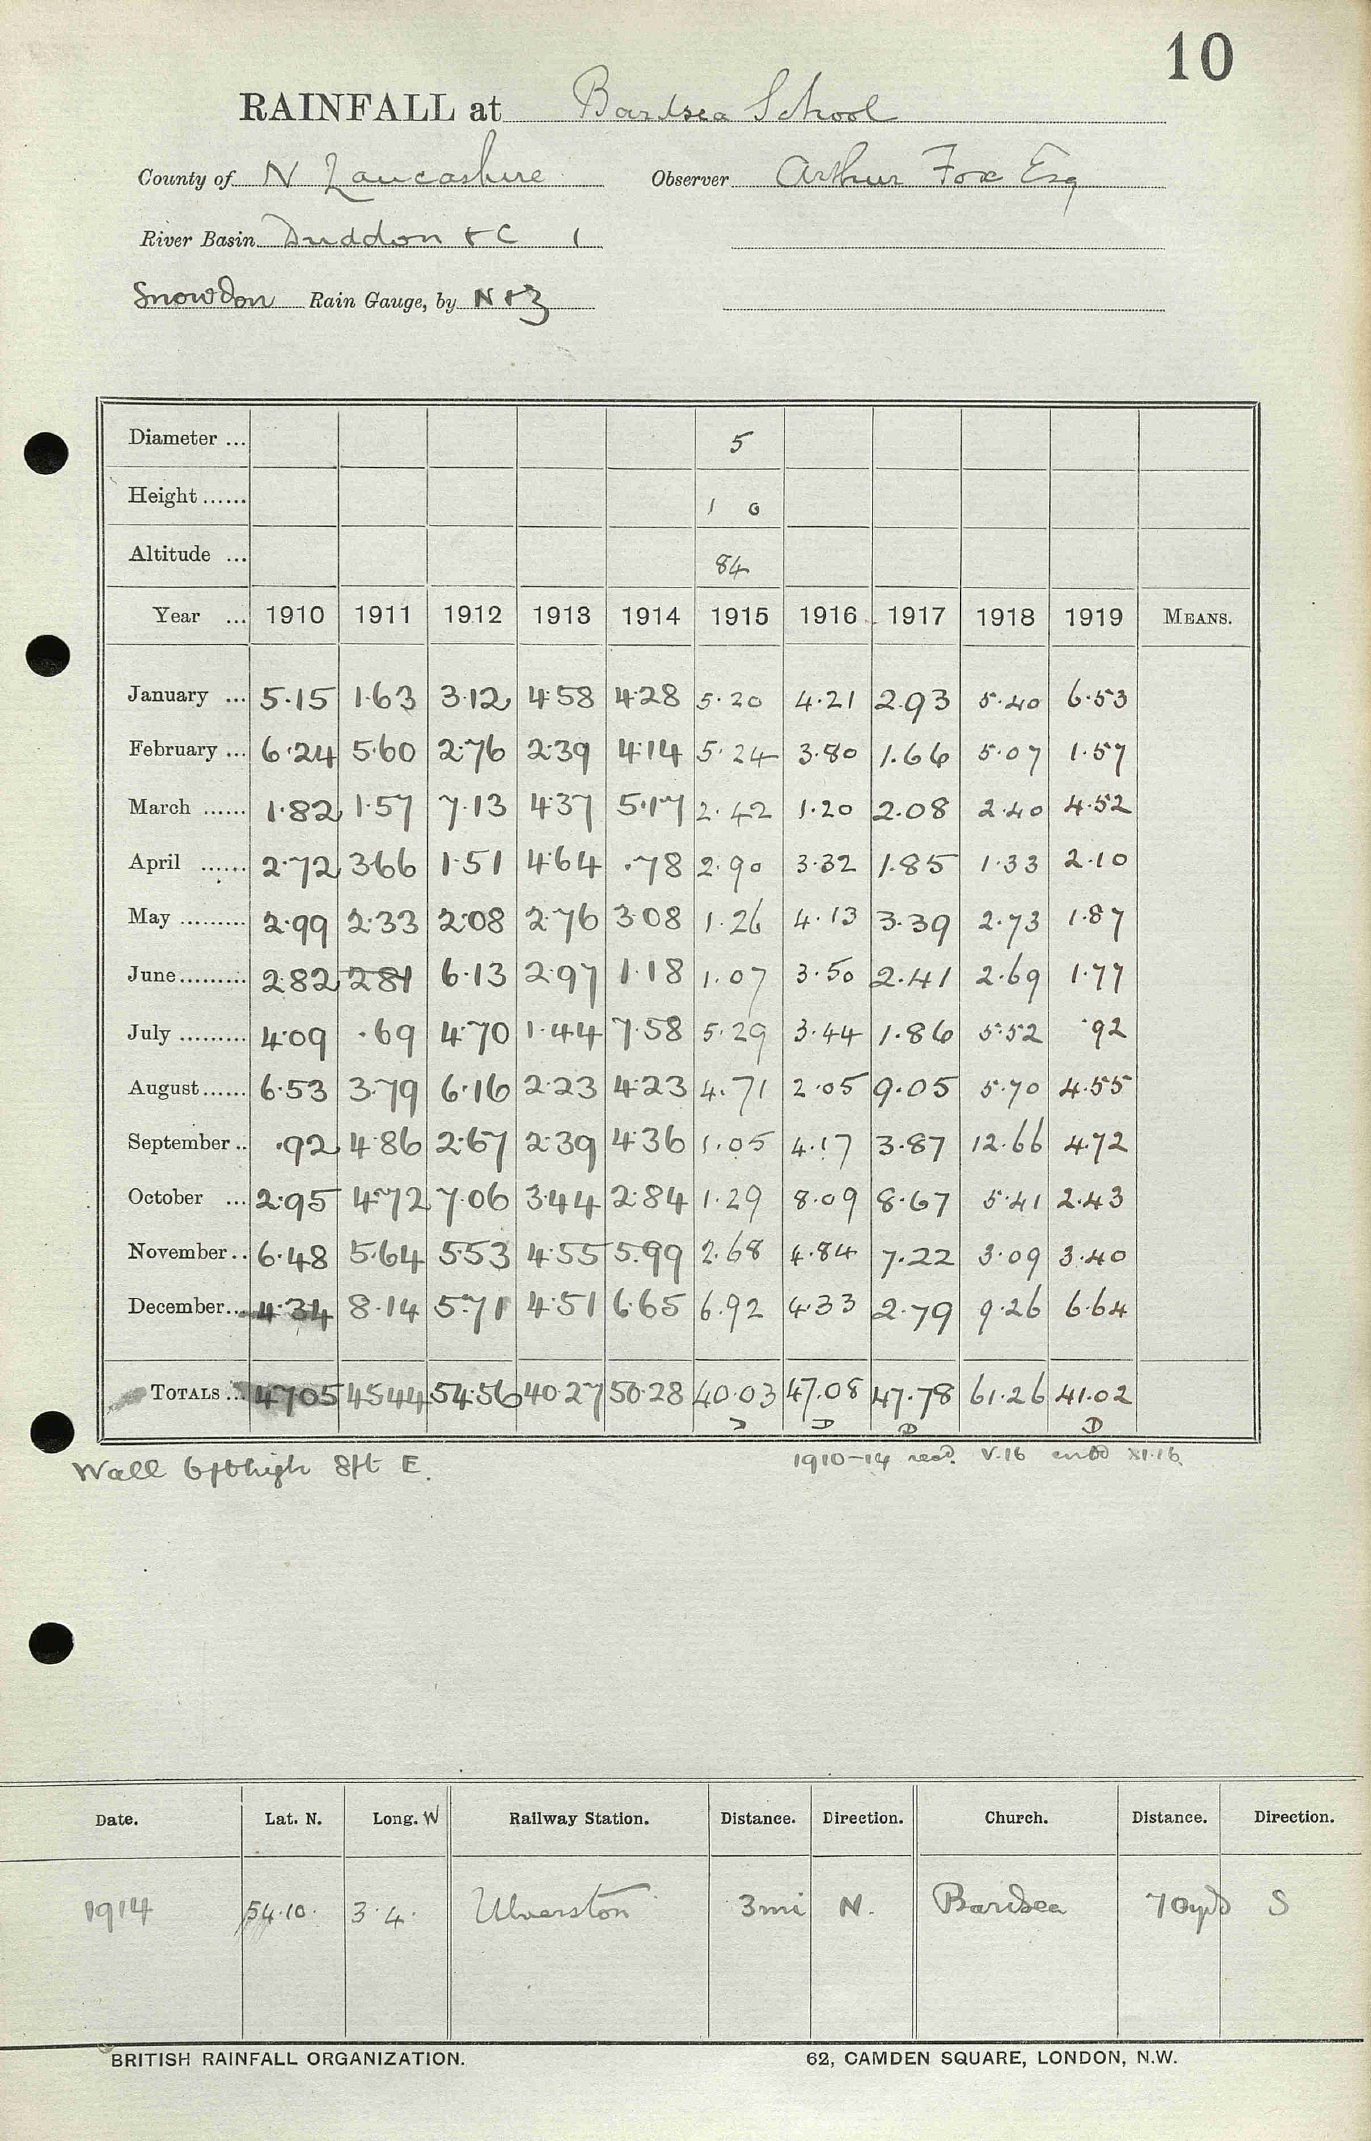 10
RAINFALL at Bardsea School
County of N Lancashire Observer Arthur Fox Esq
River Basin Duddon &C 1
Snowdon Rain Gauge, by N&Z
Diameter ... 5
Height ...... 1 0
Altitude ... 84
Year ... 1910 1911 1912 1913 1914 1915 1916 1917 1918 1919 MEANS.
January ... 5.15 1.63 3.12 4.58 4.28 5.20 4.21 2.93 5.40 6.53
February ... 6.24 5.60 2.76 2.39 4.14 5.24 3.80 1.66 5.07 1.57
March ...... 1.82 1.57 7.13 4.37 5.17 2.42 1.20 2.08 2.40 4.52
April ...... 2.72 3.66 1.51 4.64 .78 2.90 3.32 1.85 1.33 2.10
May ......... 2.99 2.33 2.08 2.76 3.08 1.26 4.13 3.39 2.73 1.87
June ......... 2.82 2.81 6.13 2.97 1.18 1.07 3.50 2.41 2.69 1.77
July ......... 4.09 .69 4.70 1.44 7.58 5.29 3.44 1.86 5.52 .92
August ...... 6.53 3.79 6.16 2.23 4.23 4.71 2.05 9.05 5.70 4.55
September .. .92 4.86 2.67 2.39 4.36 1.05 4.17 3.87 12.66 4.72
October ... 2.95 4.72 7.06 3.44 2.84 1.29 8.09 8.67 5.41 2.43
November .. 6.48 5.64 5.53 4.55 5.99 2.68 4.84 7.22 3.09 3.40
December ... 4.34 8.14 5.71 4.51 6.65 6.92 4.33 2.79 9.26 6.64
TOTALS ... 47.05 45.44 54.56 40.27 50.28 40.03 47.08 47.78 61.26 41.02
D D D D
Wall 6ft high 8ft E. 1910-14 recd. V.16 entd XI.16.
Date. Lat. N. Long. W Railway Station. Distance. Direction. Church. Distance. Direction.
1914 54.10. 3.4. Ulverston 3mi N. Bardsea 70yds S
BRITISH RAINFALL ORGANIZATION. 62, CAMDEN SQUARE, LONDON, N.W.